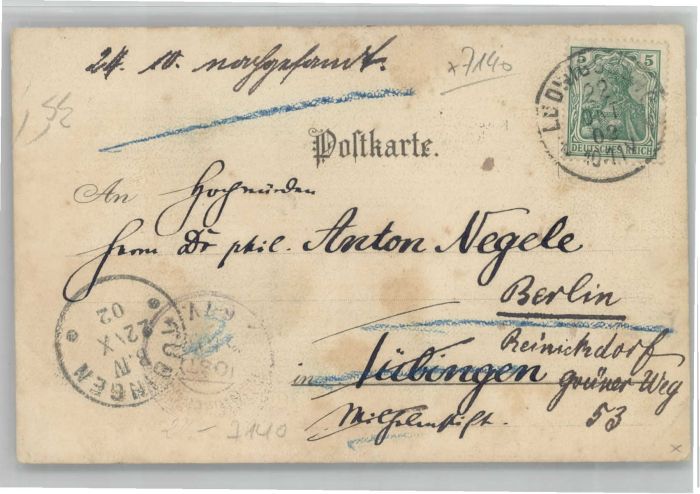 24. 10. nachgesandt.
x7140
5
DEUTSCHES REICH
22
OKT
02
10-11
Postkarte.
An Hochwürden
Herrn Dr phil. Anton Negele
Berlin
Reinickdorf
in Tübingen grüner Weg
Wilhelmstift. 53
TÜBINGEN
22 X
02
7140
x